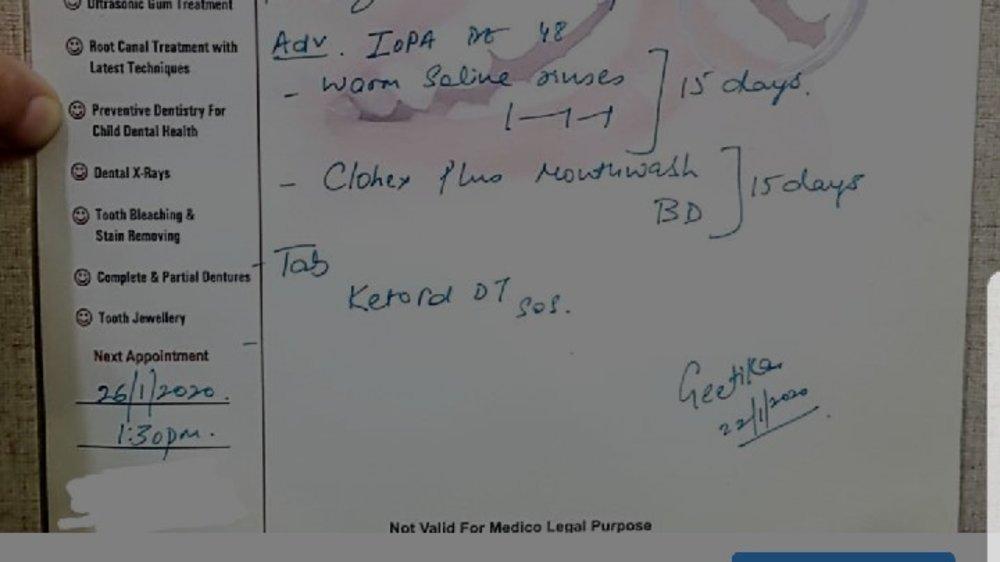 Ultrasonic Gum Treatment
Root Canal Treatment with
Latest Techniques
Preventive Dentistry For
Child Dental Health
Dental X-Rays
Tooth Bleaching &
Stain Removing
Complete & Partial Dentures
Tooth Jewellery
Next Appointment
26/1/2020.
1:30pm.
Adv. IOPA 48
- Warm Saline rinses
1-1-1
15 days.
- Clohex Plus Mouthwash
BD
15 days
- Tab
Ketorol DT SOS.
Geetika
22/1/2020
Not Valid For Medico Legal Purpose